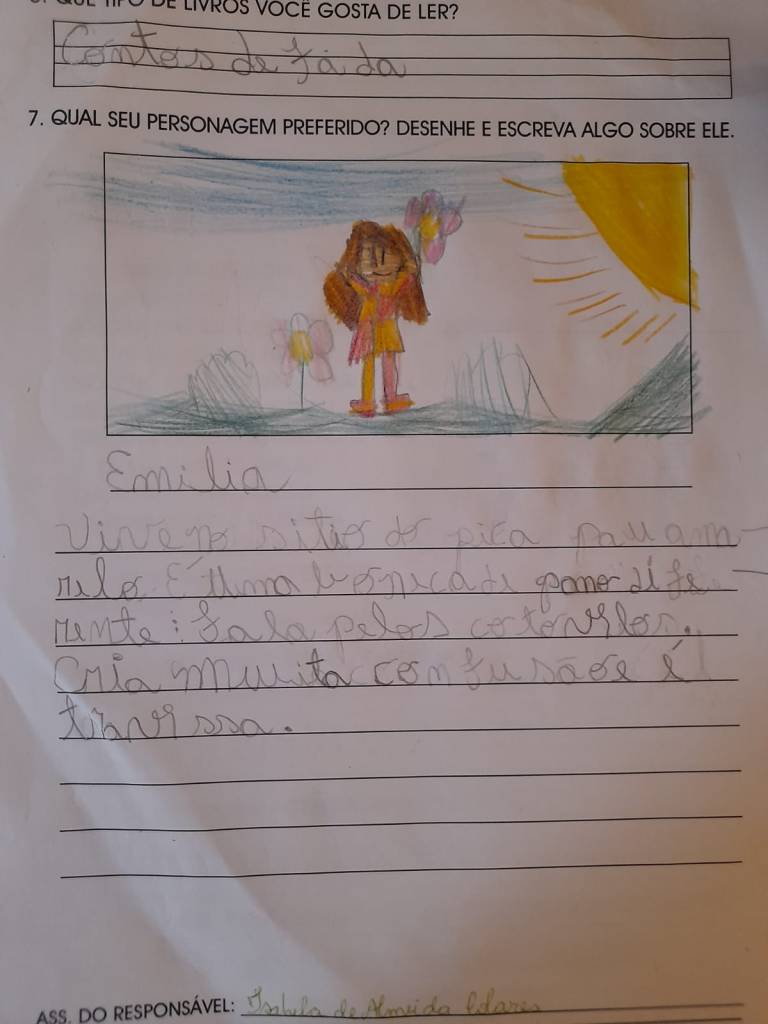 6. QUE TIPO DE LIVROS VOCÊ GOSTA DE LER?
Contos de fada
7. QUAL SEU PERSONAGEM PREFERIDO? DESENHE E ESCREVA ALGO SOBRE ELE.
Emilia
Vive no sitio do pica pau ama-
relo É uma boneca de pano dife-
rente: fala pelos cotovelos.
Cria muita confusão e é
travessa.
ASS. DO RESPONSÁVEL: Isabela de Almeida